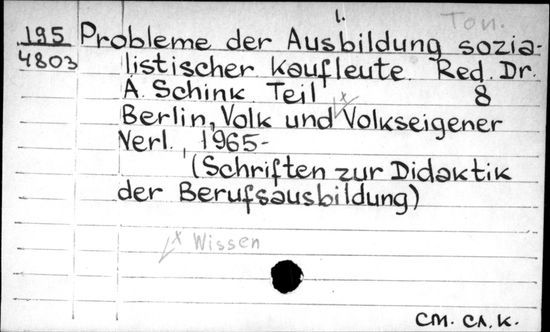 1. Ton.
195 Probleme der Ausbildung sozia-
4803 listischer Kaufleute. Red. Dr.
A. Schink. Teil 8
Berlin, Volk und Volkseigener
Verl., 1965-
(Schriften zur Didaktik
der Berufsausbildung)
x Wissen
см. сл. к.